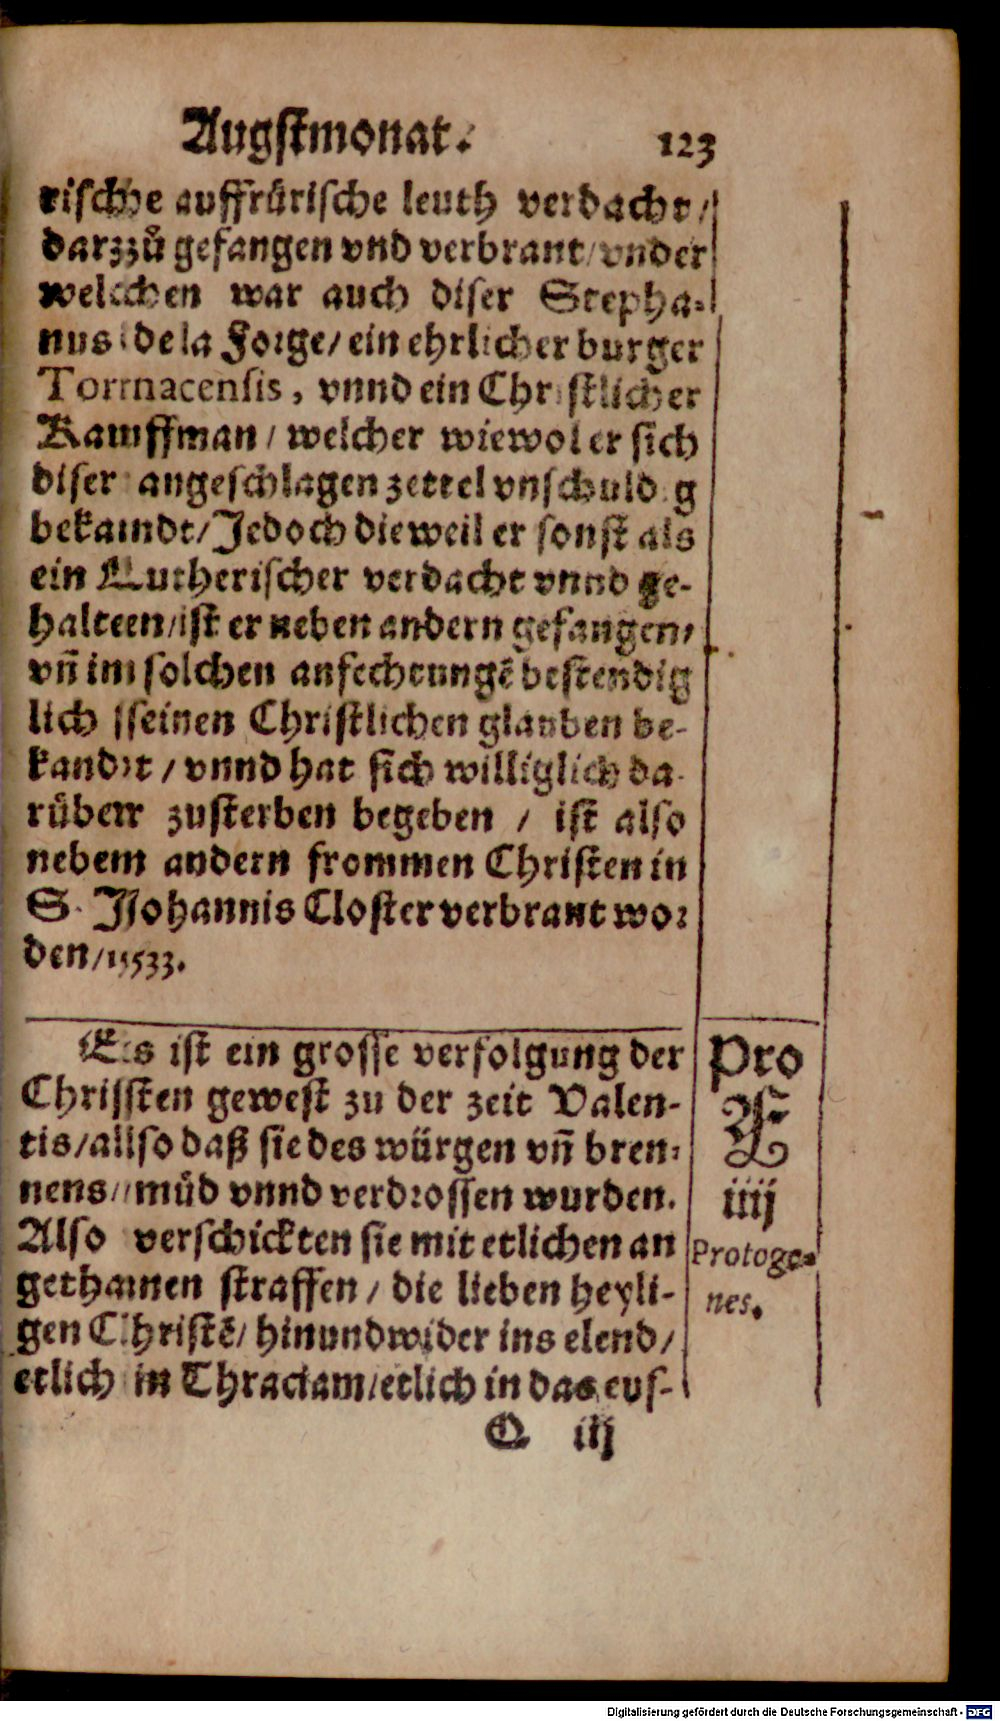 Augstmonat. 123
rische auffrürische leuth verdacht/
darzzů gefangen vnd verbrant/vnder
welcchen war auch diser Stepha-
nus de la Forge/ein ehrlicher burger
Tornacensis, vnnd ein Christlicher
Kauffman/welcher wiewol er sich
diser angeschlagen zettel vnschuldig
bekandt/Jedoch dieweil er sonst als
ein Lutherischer verdacht vnnd ge-
halten/ist er neben andern gefangen/
vñ im solchen anfechtungē bestendig
lich seinen Christlichen glauben be-
kandt/vnnd hat sich williglich da-
rüber zusterben begeben / ist also
neben andern frommen Christen in
S. Johannis Closter verbrant wor
den/1533.
Es ist ein grosse verfolgung der
Christen gewest zu der zeit Valen-
tis/also daß sie des würgen vñ bren-
nens/müd vnnd verdrossen wurden.
Also verschickten sie mit etlichen an
gethanen straffen/die lieben heyli-
gen Christē/hinundwider ins elend/
etlich in Thraciam/etlich in das eus-
Pro
iiij
Protoge-
nes.
Q iij
Digitalisierung gefördert durch die Deutsche Forschungsgemeinschaft - DFG